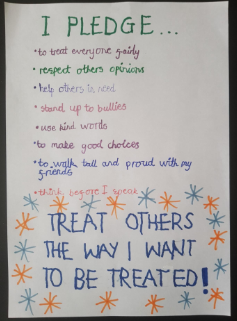 I PLEDGE...
• to treat everyone fairly
• respect others opinions
• help others in need
• stand up to bullies
• use kind words
• to make good choices
• to walk tall and proud with my
friends
• think before I speak
TREAT OTHERS
THE WAY I WANT
TO BE TREATED!